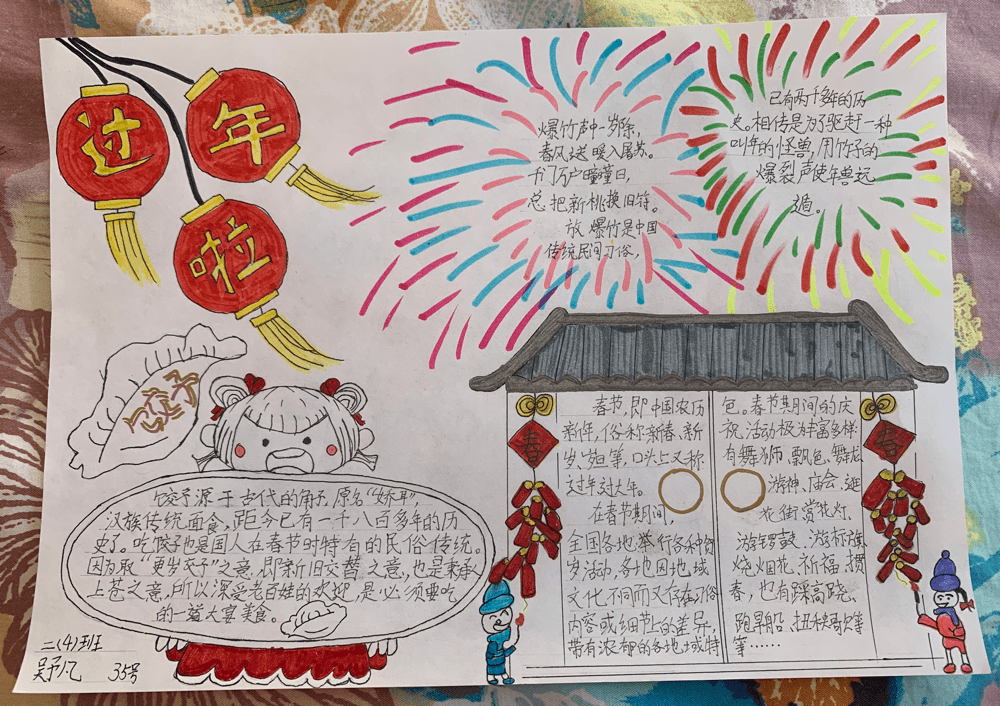 过年
啦
爆竹声中一岁除，
春风送暖入屠苏。
千门万户曈曈日，
总把新桃换旧符。
放爆竹是中国
传统民间习俗，
已有两千多年的历
史。相传是为了驱赶一种
叫年的怪兽，用竹子的
爆裂声使年兽远
遁。
饺子
饺子源于古代的角子，原名“娇耳”，
汉族传统面食，距今已有一千八百多年的历
史了。吃饺子也是国人在春节时特有的民俗传统。
因为取“更岁交子”之意，即新旧交替之意，也是秉承
上苍之意，所以深受老百姓的欢迎，是必须要吃
的一道大宴美食。
二(4)班
吴予凡 35号
春
春节，即中国农历
新年，俗称新春、新
岁、岁旦等，口头上又称
过年、过大年。
在春节期间，
全国各地举行各种贺
岁活动，各地因地域
文化不同而又存在习俗
内容或细节上的差异，
带有浓郁的各地域特
色。春节期间的庆
祝活动极为丰富多样
有舞狮、飘色、舞龙、
游神、庙会、逛
花街、赏花灯、
游锣鼓、游标旗、
烧烟花、祈福、掼
春，也有踩高跷、
跑旱船、扭秧歌等
等……
春